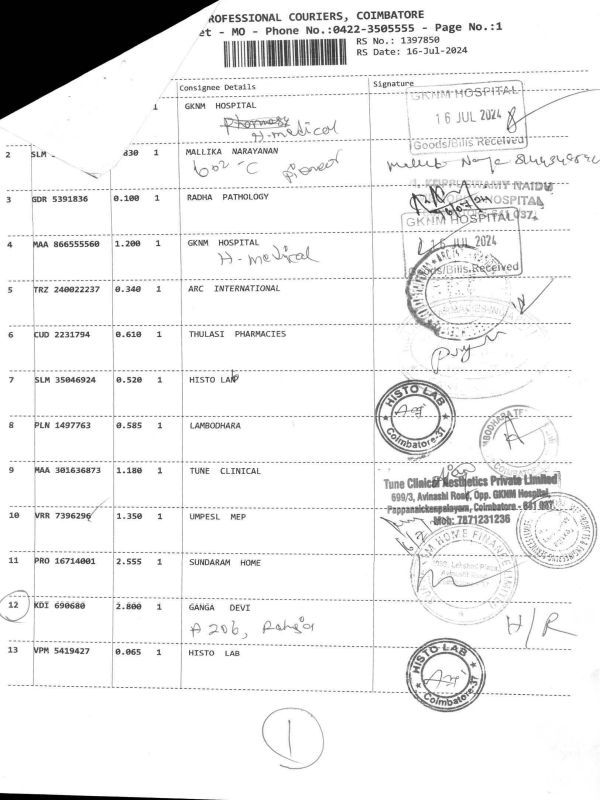 ROFESSIONAL COURIERS, COIMBATORE
et - MO - Phone No.:0422-3505555 - Page No.:1
RS No.: 1397850
RS Date: 16-Jul-2024
Consignee Details Signature
1 GKNM HOSPITAL
Pharmasy
H-medical
GKNM HOSPITAL
16 JUL 2024
Goods/Bills Received
2 SLM 830 1 MALLIKA NARAYANAN
602-C pioneer
3 GDR 5391836 0.100 1 RADHA PATHOLOGY
KUPPUSWAMY NAIDU
HOSPITAL
4 MAA 866555560 1.200 1 GKNM HOSPITAL
H-medical
GKNM HOSPITAL
16 JUL 2024
Goods/Bills Received
5 TRZ 240022237 0.340 1 ARC INTERNATIONAL
6 CUD 2231794 0.610 1 THULASI PHARMACIES
7 SLM 35046924 0.520 1 HISTO LAB
HISTO LAB
Coimbatore-37
8 PLN 1497763 0.585 1 LAMBODHARA
9 MAA 301636873 1.180 1 TUNE CLINICAL
Tune Clinical Aesthetics Private Limited
699/3, Avinashi Road, Opp. GKNM Hospital,
Pappanaickenpalayam, Coimbatore - 641 037.
Mob: 7871231236
10 VRR 7396296 1.350 1 UMPESL MEP
11 PRO 16714001 2.555 1 SUNDARAM HOME
HOME FINANCE LIMITED
12 KDI 690680 2.800 1 GANGA DEVI
A 206,
H/R
13 VPM 5419427 0.065 1 HISTO LAB
HISTO LAB
Coimbatore-37
1